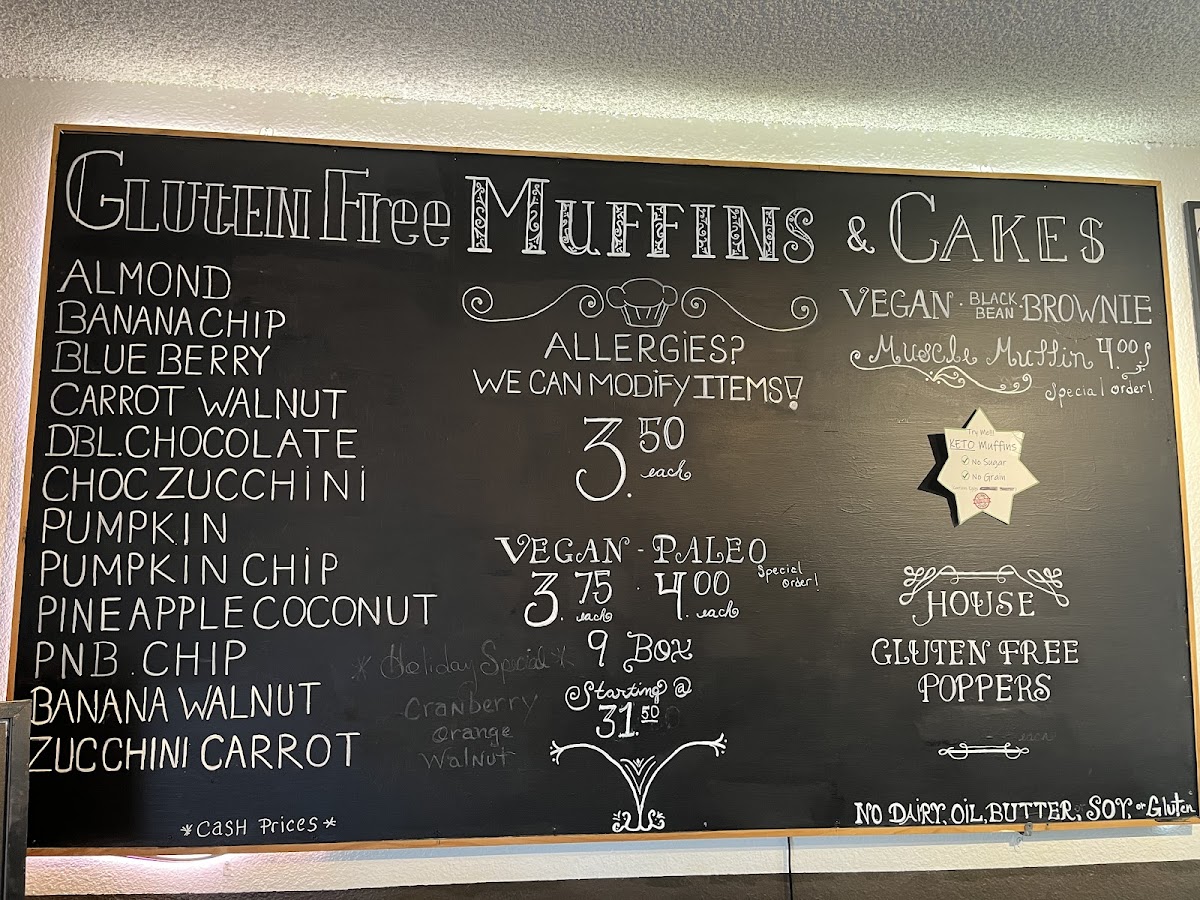 Gluten Free Muffins & Cakes
ALMOND
BANANA CHIP
BLUE BERRY
CARROT WALNUT
DBL. CHOCOLATE
CHOC ZUCCHINI
PUMPKIN
PUMPKIN CHIP
PINEAPPLE COCONUT
PNB. CHIP
BANANA WALNUT
ZUCCHINI CARROT
*CASH PRICES*
ALLERGIES?
WE CAN MODIFY ITEMS!
3.50
each
VEGAN - PALEO
Special order!
3.75 each . 4.00 each
9 BOX
Starting @
31.50
* Holiday Special *
Cranberry
Orange
Walnut
VEGAN . BLACK BEAN . BROWNIE
Muscle Muffin 4.00
Special order!
Try Me!!
KETO Muffins
No Sugar
No Grain
HOUSE
GLUTEN FREE
POPPERS
each
NO DAIRY, OIL, BUTTER, SOY, or Gluten